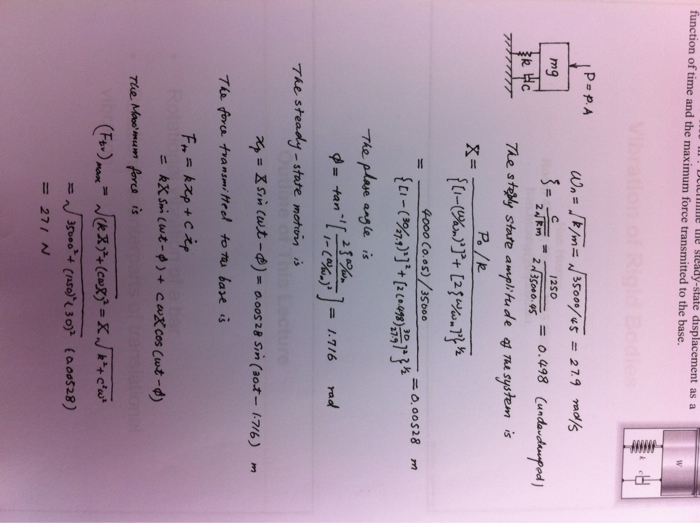 function of time and the maximum force transmitted to the base.
P = p.A
mg
k c
W
k c
ωn = √k/m = √35000/45 = 27.9 rad/s
ξ = c / 2√km = 1250 / 2√35000.45 = 0.498 (underdamped)
The steady state amplitude of the system is
X = P₀/k / {[1-(ω/ωn)²]² + [2ξω/ωn]²}^½
= 4000 (0.05)/35000 / {[1-(30/27.9)²]² + [2(0.498) 30/27.9]²}^½ = 0.00528 m
The phase angle is
φ = tan⁻¹ [2ξω/ωn / 1-(ω/ωn)²] = 1.716 rad
The steady-state motion is
xp = X sin(ωt-φ) = 0.00528 sin(30t-1.716) m
The force transmitted to the base is
Ftr = kxp + cẋp
= kX sin(ωt-φ) + cωX cos(ωt-φ)
The Maximum force is
(Ftr)max = √(kX)²+(cωX)² = X√k²+c²ω²
= √35000² + (1250)²(30)² (0.00528)
= 271 N